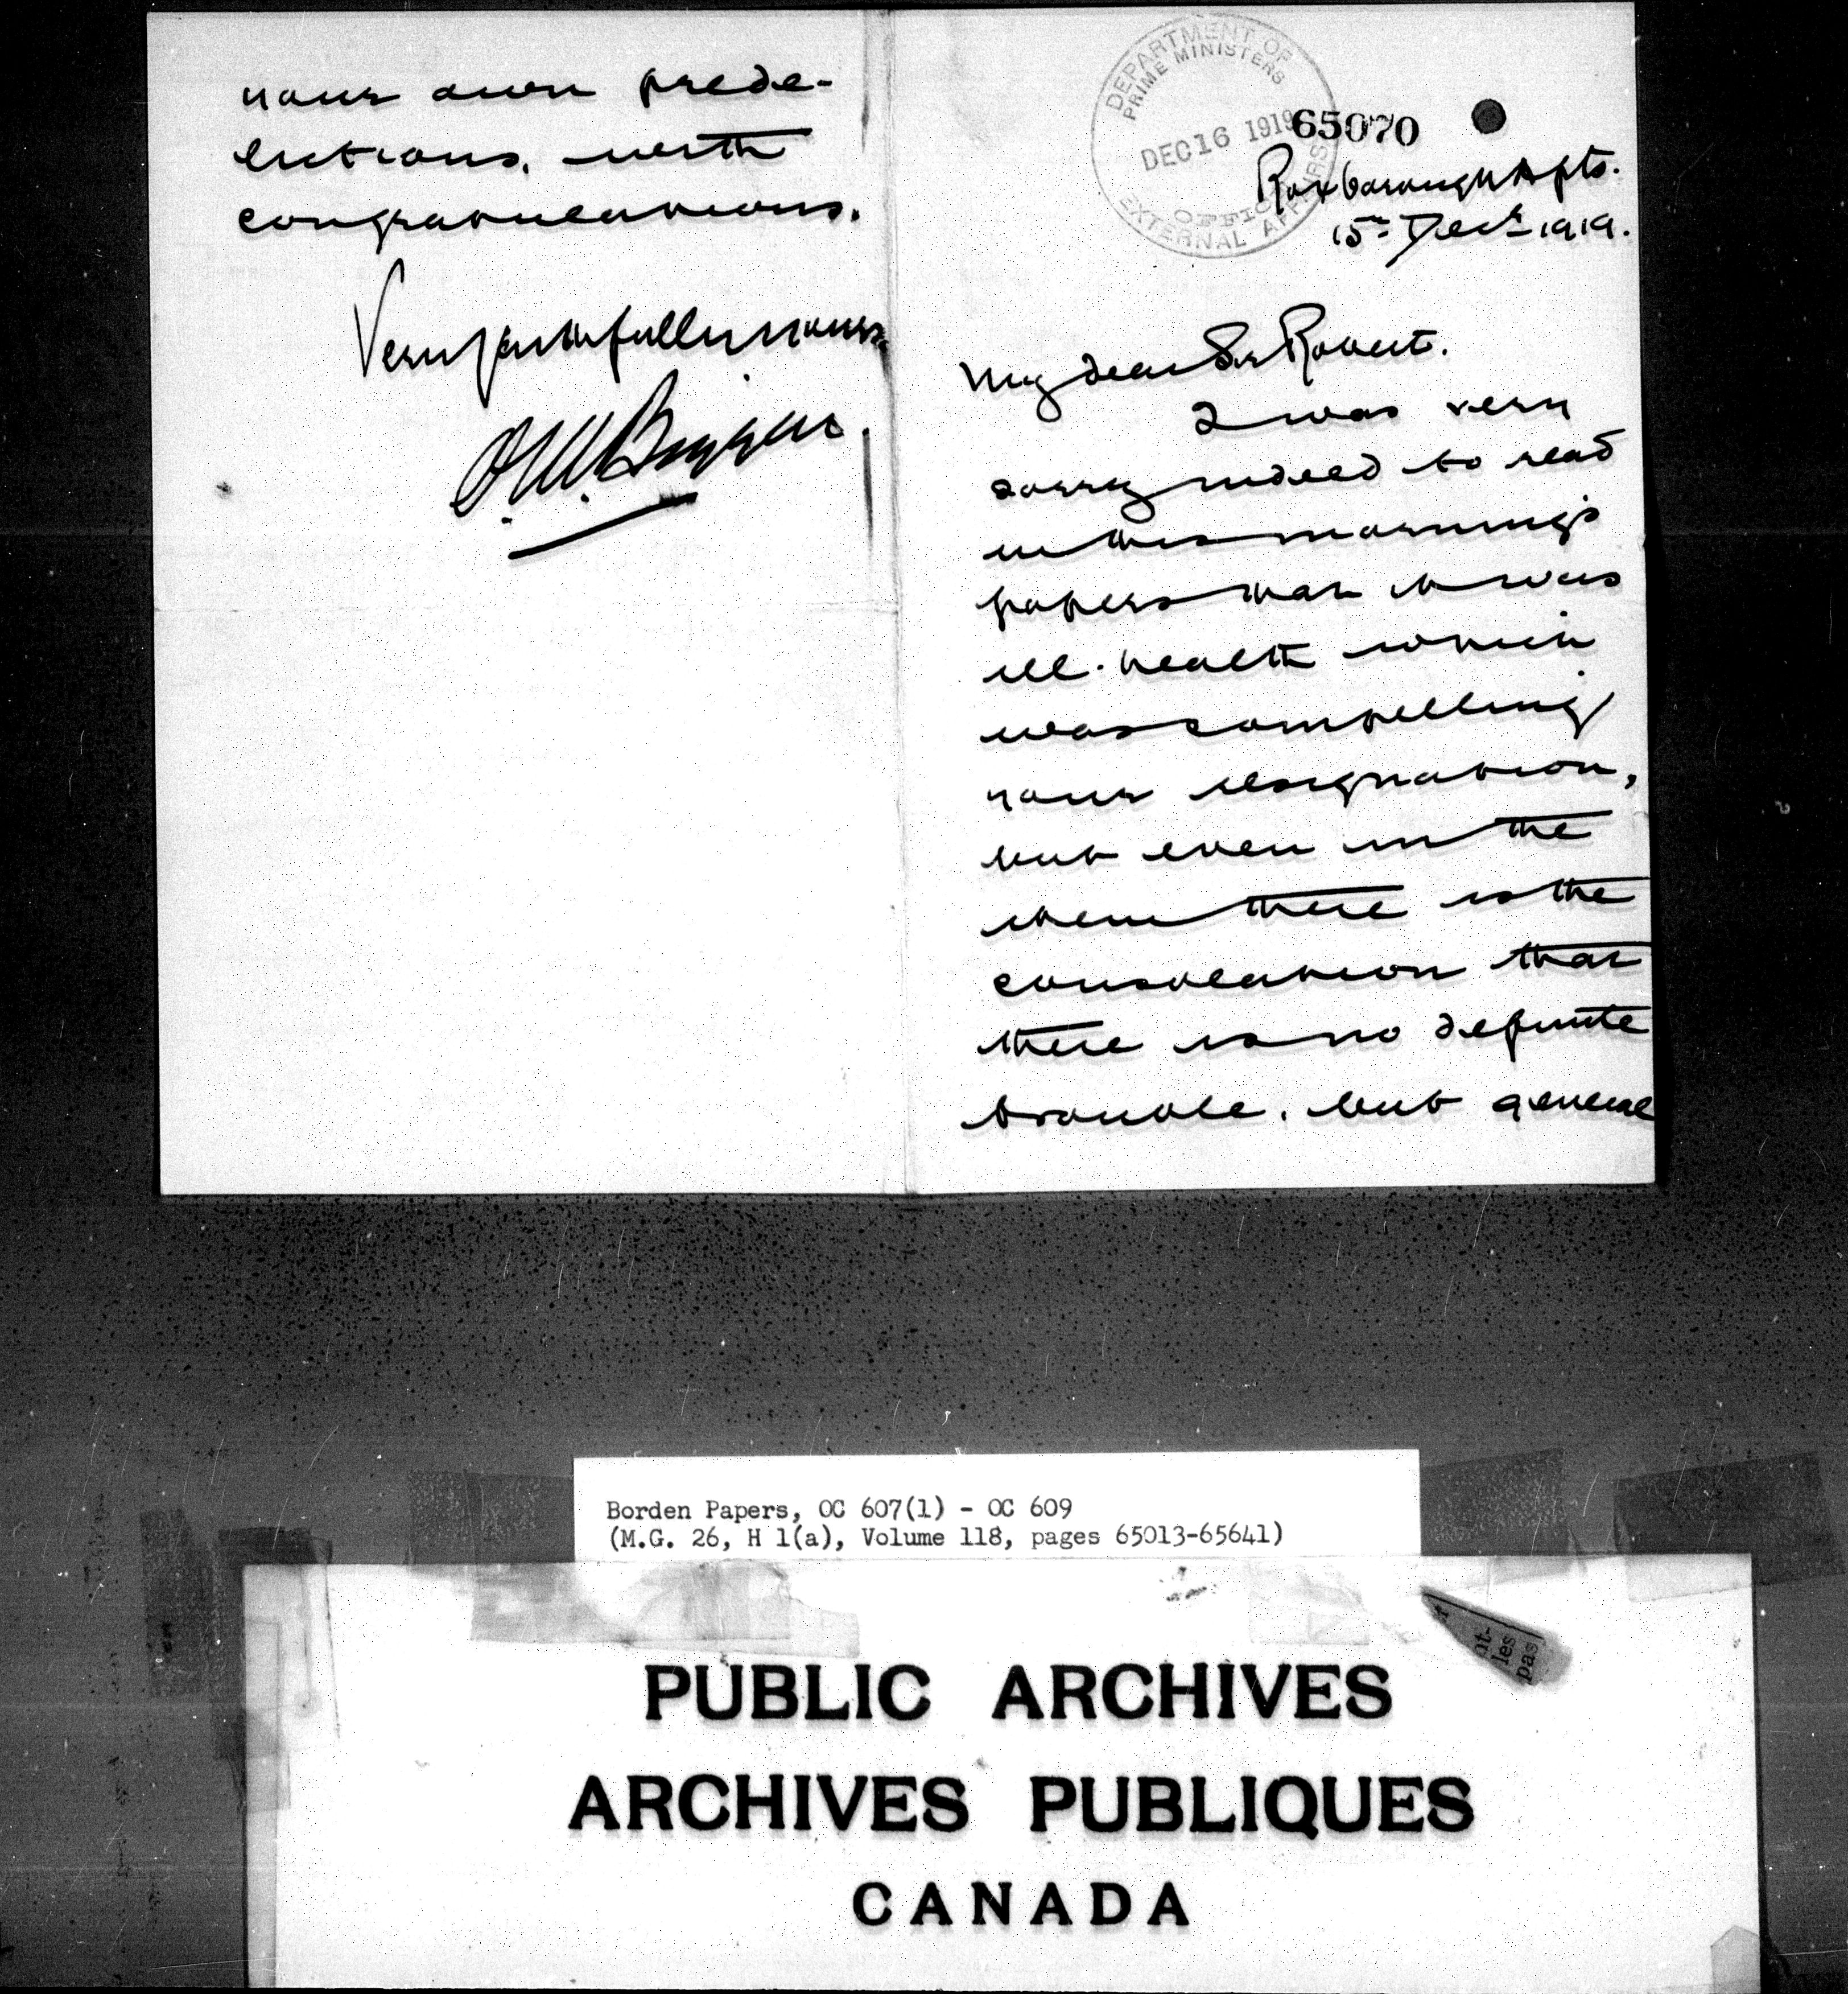 your own prede-
lictions, with
congratulations.
Very faithfully yours
O.M. Biggar.
DEPARTMENT OF
PRIME MINISTERS
DEC 16 1919
OFFICE
EXTERNAL AFFAIRS
65070
Roxborough Apts.
15th Decr 1919.
My dear Sir Robert.
I was very
sorry indeed to read
in this morning's
papers that it was
ill-health which
was compelling
your resignation,
but even in the
there is the
consolation that
there is no definite
trouble, but general
Borden Papers, OC 607(1) - OC 609
(M.G. 26, H 1(a), Volume 118, pages 65013-65641)
nt-
les
pas
PUBLIC ARCHIVES
ARCHIVES PUBLIQUES
CANADA